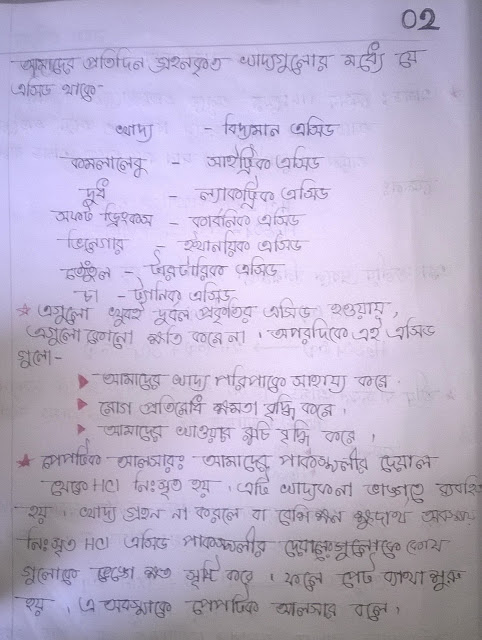 02
আমাদের প্রতিদিন গ্রহনকৃত খাদ্যগুলোর মধ্যে যে
এসিড থাকে-
খাদ্য - বিদ্যমান এসিড
কমলালেবু - সাইট্রিক এসিড
দুধ - ল্যাকট্রিক এসিড
সফট ড্রিংকস - কার্বনিক এসিড
ভিনেগার - ইথানয়িক এসিড
তেঁতুল - টারটারিক এসিড
চা - ট্যানিক এসিড
★ এগুলো খুবই দুর্বল প্রকৃতির এসিড হওয়ায়,
এগুলো কোনো ক্ষতি করে না। অপরদিকে এই এসিড
গুলো-
▶ আমাদের খাদ্য পরিপাকে সাহায্য করে।
▶ রোগ প্রতিরোধ ক্ষমতা বৃদ্ধি করে।
▶ আমাদের খাওয়ার রুচি বৃদ্ধি করে।
★ পেপটিক আলসারঃ আমাদের পাকস্থলীর দেয়াল
থেকে HCl নিঃসৃত হয়। এটি খাদ্যকনা ভাঙ্গতে ব্যবহৃত
হয়। খাদ্য গ্রহন না করলে বা বেশিক্ষন ক্ষুধার্থ অবস্থায়
নিঃসৃত HCl এসিড পাকস্থলীর দেয়ালেগুলোকে কোষ
গুলোকে ভেঙ্গে ক্ষত সৃষ্টি করে। ফলে পেট ব্যাথা শুরু
হয়। এ অবস্থাকে পেপটিক আলসার বলে।